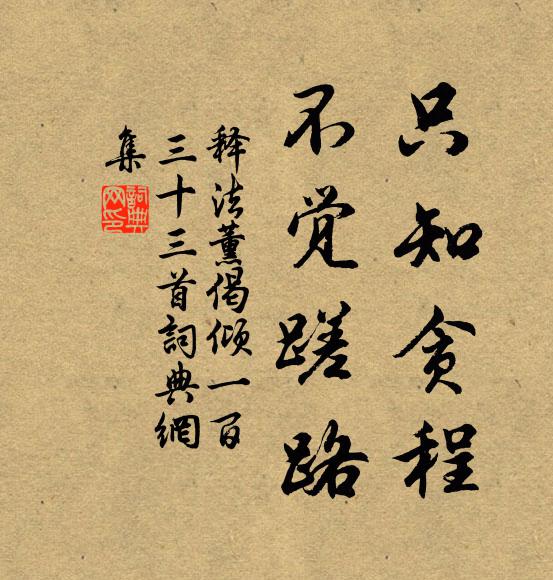 只知贪程
不觉蹉路
释法薰偈倾一百
三十三首詞典網
集
詞典
网印